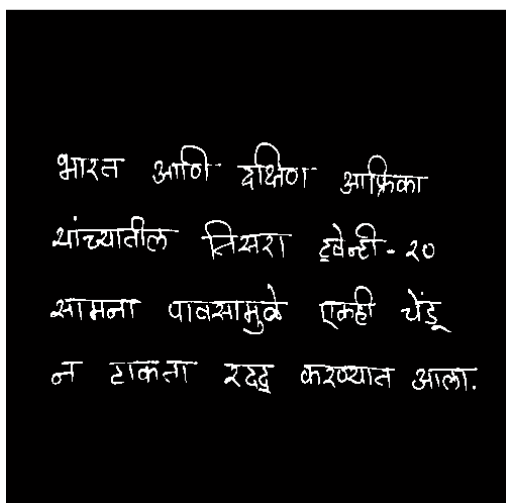 भारत आणि दक्षिण आफ्रिका
यांच्यातील तिसरा ट्वेन्टी-२०
सामना पावसामुळे एकही चेंडू
न टाकता रदद् करण्यात आला.